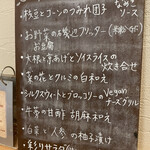 ・枝豆とコーンのつみれ団子
なめこソース
・お野菜の磯辺フリッター(米粉の衣)
お豆腐
・大根と京あげとソイスライスの炊き合せ
・菜の花とクルミの白和え
・シルクスウィートとブロッコリーのVegan
チーズグリル
・牛蒡の甘酢胡麻和え
・白菜と人参の柚子漬け
・彩りサラダ